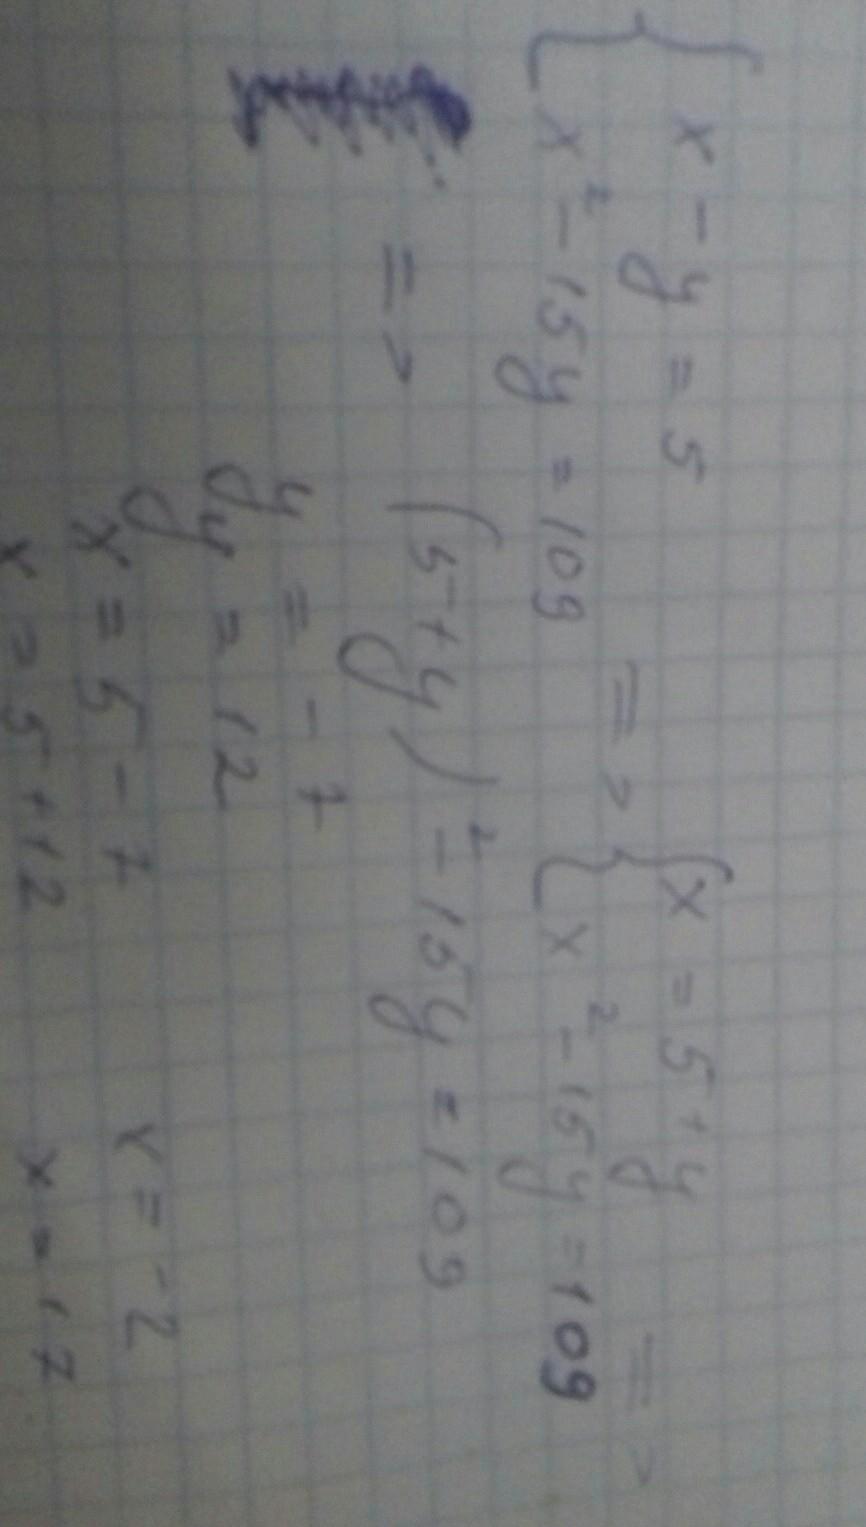 x - y = 5
x² - 15y = 109 => x = 5 + y
x² - 15y = 109 =>
=> (5 + y)² - 15y = 109
y = -7
y = 12
x = 5 - 7 x = -2
x = 5 + 12 x = 17